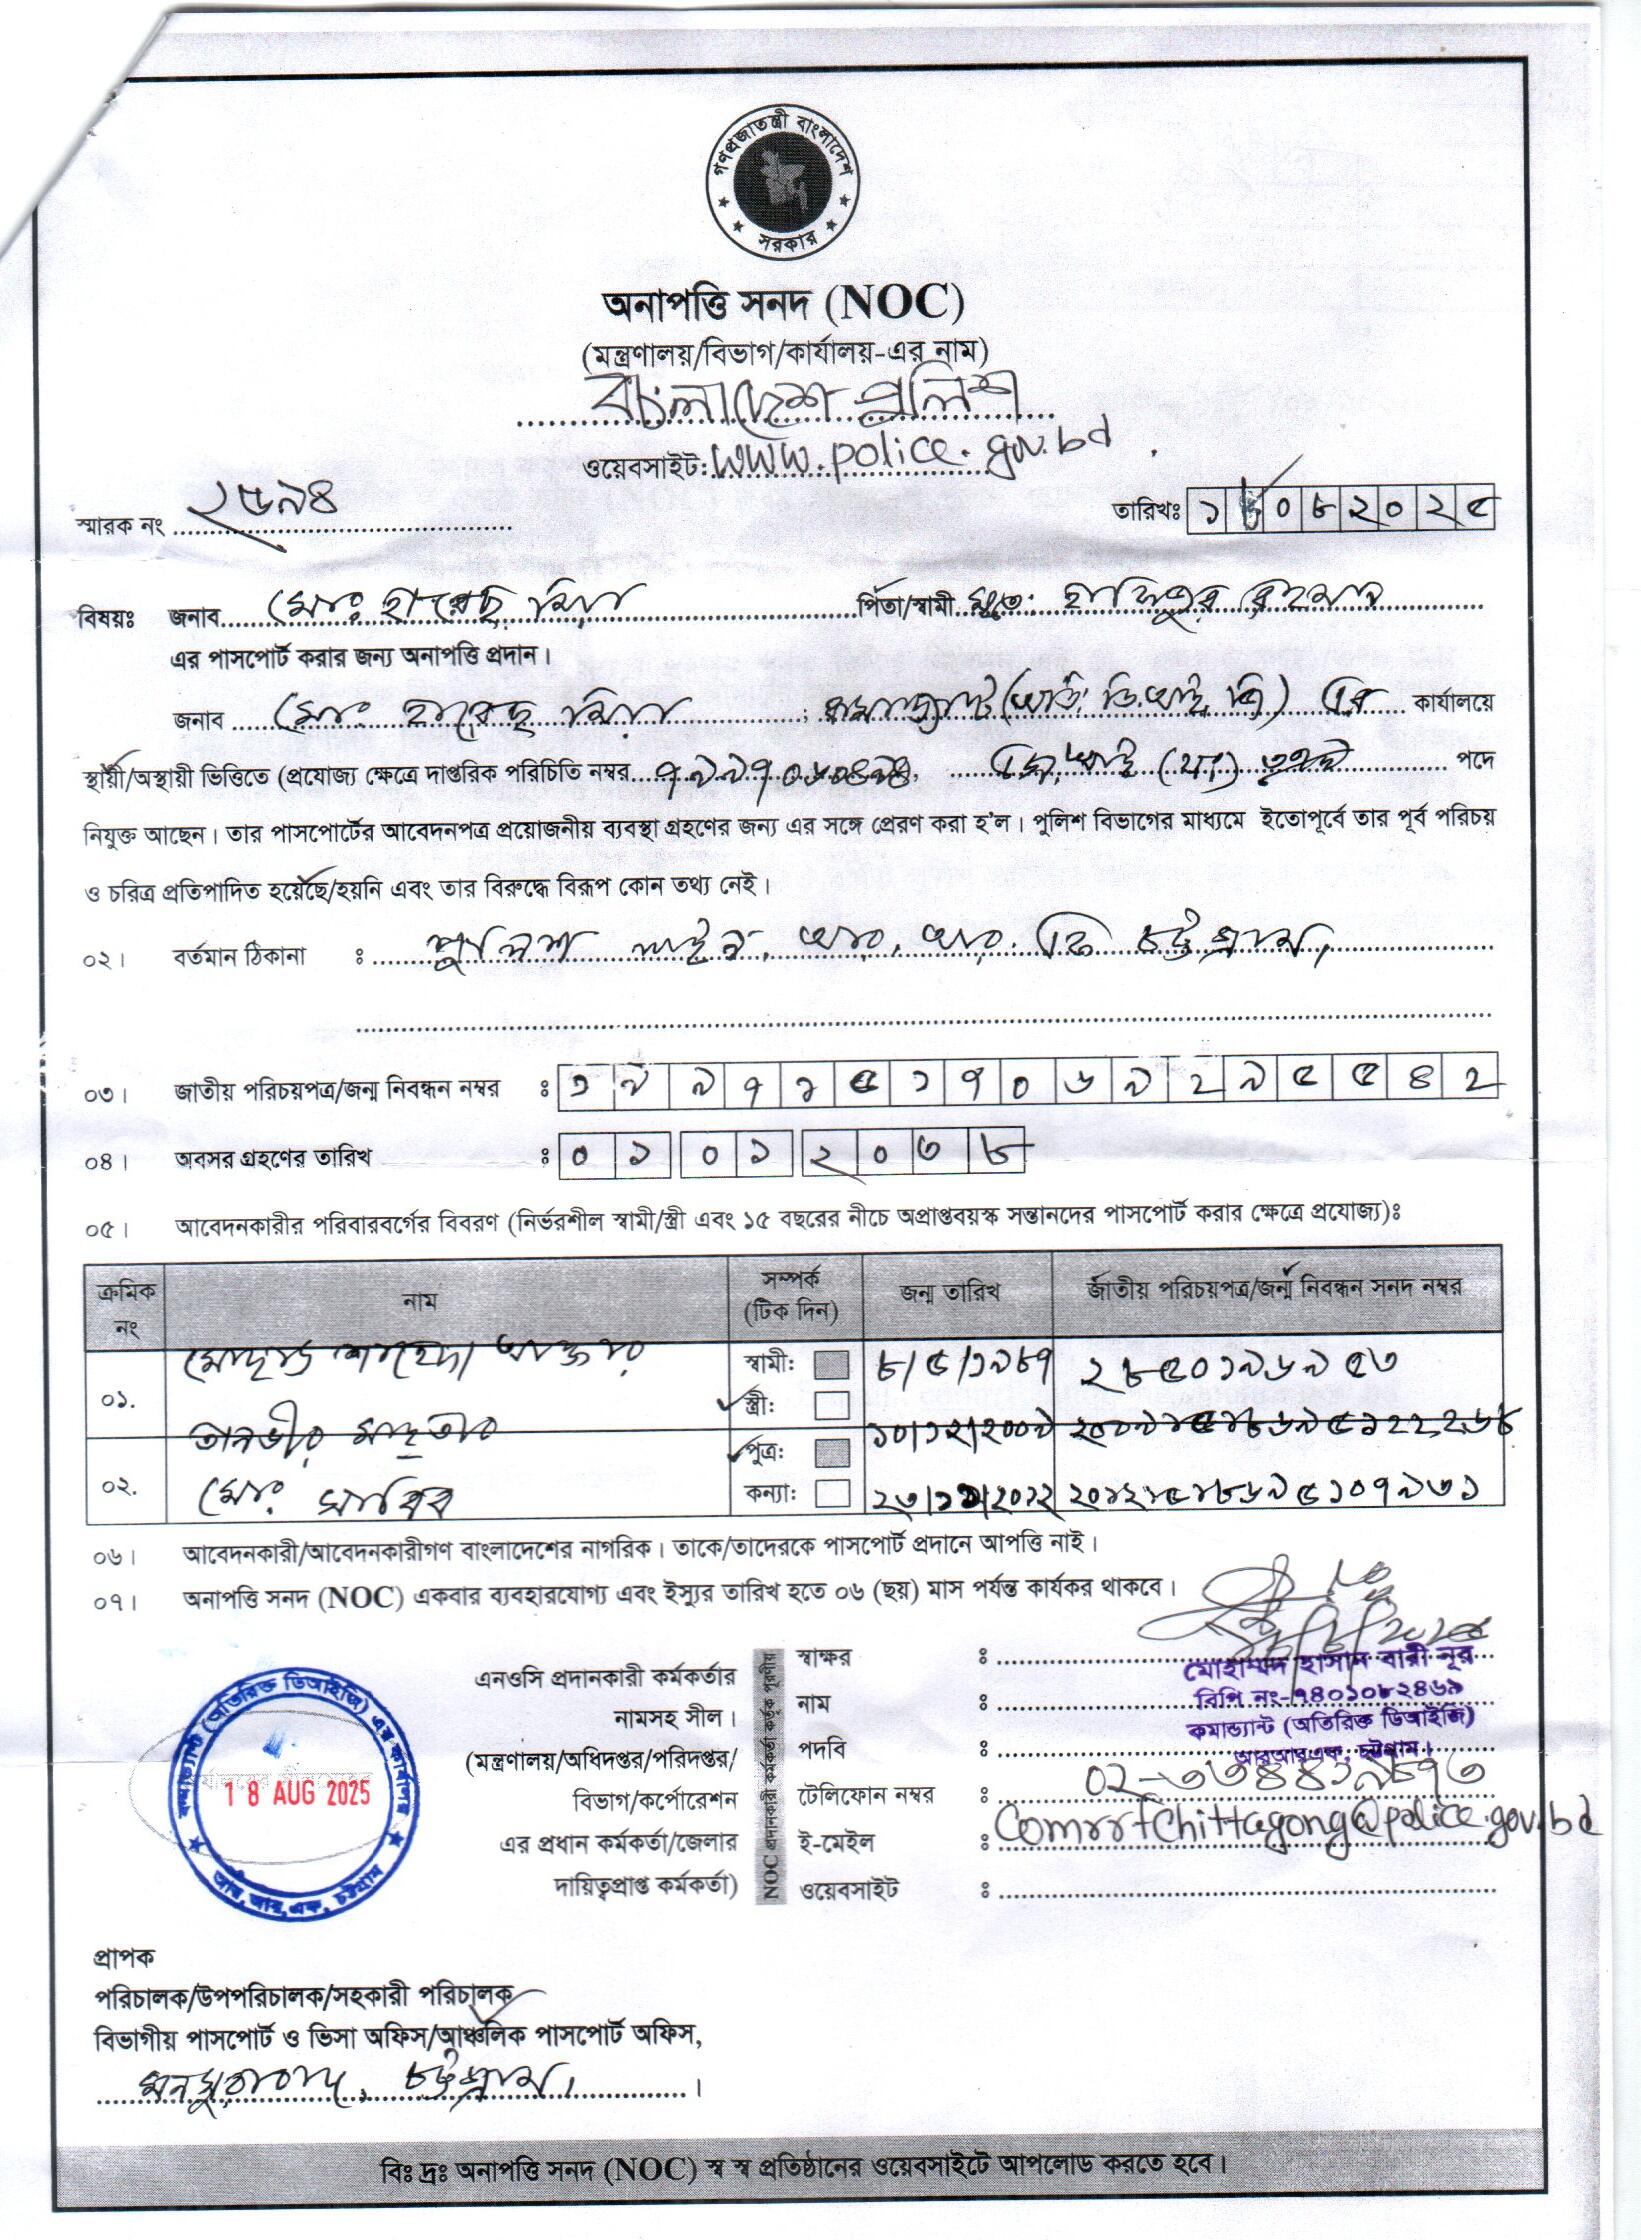 গণপ্রজাতন্ত্রী বাংলাদেশ
সরকার
অনাপত্তি সনদ (NOC)
(মন্ত্রণালয়/বিভাগ/কার্যালয়-এর নাম)
বাংলাদেশ পুলিশ
ওয়েবসাইট: www.police.gov.bd
স্মারক নং ২৬৯৪
তারিখঃ ১৮০৮২০২৫
বিষয়ঃ জনাব মোঃ হারেছ মিয়া পিতা/স্বামী মৃতঃ হাফিজুর রহমান
এর পাসপোর্ট করার জন্য অনাপত্তি প্রদান।
জনাব মোঃ হারেছ মিয়া, কমান্ড্যান্ট (অতি: ডিআইজি) এর কার্যালয়ে
স্থায়ী/অস্থায়ী ভিত্তিতে (প্রযোজ্য ক্ষেত্রে দাপ্তরিক পরিচিতি নম্বর পদে
নিযুক্ত আছেন। তার পাসপোর্টের আবেদনপত্র প্রয়োজনীয় ব্যবস্থা গ্রহণের জন্য এর সঙ্গে প্রেরণ করা হ'ল। পুলিশ বিভাগের মাধ্যমে ইতোপূর্বে তার পূর্ব পরিচয়
ও চরিত্র প্রতিপাদিত হয়েছে/হয়নি এবং তার বিরুদ্ধে বিরূপ কোন তথ্য নেই।
০২। বর্তমান ঠিকানা ঃ পুলিশ লাইন, আর, আর, এফ চট্টগ্রাম,
০৩। জাতীয় পরিচয়পত্র/জন্ম নিবন্ধন নম্বর ঃ ১৯৯৭১৫১৭০৬৯২৯৫৫৪২
০৪। অবসর গ্রহণের তারিখ ঃ ০১ ০১ ২০৩৮
০৫। আবেদনকারীর পরিবারবর্গের বিবরণ (নির্ভরশীল স্বামী/স্ত্রী এবং ১৫ বছরের নীচে অপ্রাপ্তবয়স্ক সন্তানদের পাসপোর্ট করার ক্ষেত্রে প্রযোজ্য)ঃ
ক্রমিক নং নাম সম্পর্ক (টিক দিন) জন্ম তারিখ জাতীয় পরিচয়পত্র/জন্ম নিবন্ধন সনদ নম্বর
০১. মোছাঃ শাহেদা আক্তার স্বামী: ৮/৫/১৯৮৭ ২৮৫০১৯৬৯৫৩
স্ত্রী:
তানভীর মাহতাব ১০/১২/২০০৯
০২. পুত্র:
মোঃ সাকিব কন্যা: ২০১২১৫১৮৬৯৫১০৭৯৩১
০৬। আবেদনকারী/আবেদনকারীগণ বাংলাদেশের নাগরিক। তাকে/তাদেরকে পাসপোর্ট প্রদানে আপত্তি নাই।
০৭। অনাপত্তি সনদ (NOC) একবার ব্যবহারযোগ্য এবং ইস্যুর তারিখ হতে ০৬ (ছয়) মাস পর্যন্ত কার্যকর থাকবে।
কমান্ড্যান্ট (অতিরিক্ত ডিআইজি) এর কার্যালয়
18 AUG 2025
আর,আর,এফ, চট্টগ্রাম
এনওসি প্রদানকারী কর্মকর্তার
নামসহ সীল।
(মন্ত্রণালয়/অধিদপ্তর/পরিদপ্তর/
বিভাগ/কর্পোরেশন
এর প্রধান কর্মকর্তা/জেলার
দায়িত্বপ্রাপ্ত কর্মকর্তা)
NOC প্রদানকারী কর্মকর্তা কর্তৃক পূরণীয়
স্বাক্ষর ঃ
মোহাম্মদ হাসান বারী নূর
নাম ঃ বিপি নং-৭৪০১০৮২৪৬৯
কমান্ড্যান্ট (অতিরিক্ত ডিআইজি)
পদবি ঃ আরআরএফ, চট্টগ্রাম।
টেলিফোন নম্বর ঃ ০২-৩৩৪৪১৯৮৭৩
ই-মেইল ঃ Comrrfchittagong@police.gov.bd
ওয়েবসাইট ঃ
প্রাপক
পরিচালক/উপপরিচালক/সহকারী পরিচালক
বিভাগীয় পাসপোর্ট ও ভিসা অফিস/আঞ্চলিক পাসপোর্ট অফিস,
মনসুরাবাদ, চট্টগ্রাম।
বিঃ দ্রঃ অনাপত্তি সনদ (NOC) স্ব স্ব প্রতিষ্ঠানের ওয়েবসাইটে আপলোড করতে হবে।